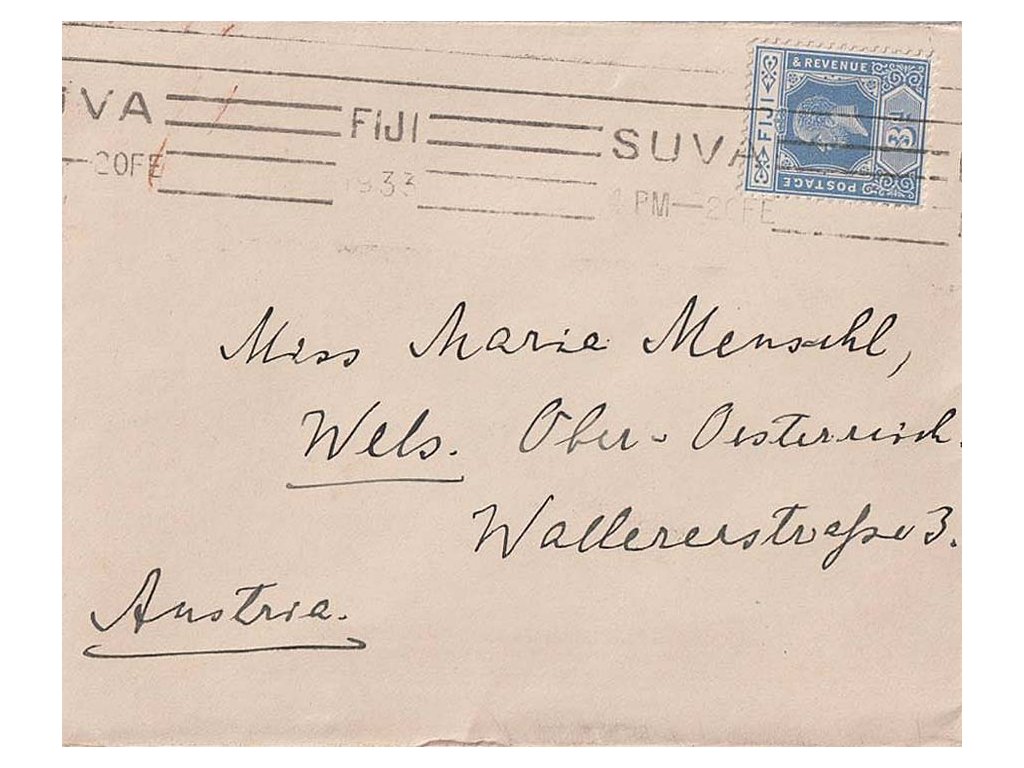 UVA FIJI SUVA
20FE 1933 1 PM—20FE
& REVENUE
FIJI
3d
POSTAGE
Miss Marie Menschl,
Wels. Ober-Oesterreich.
Wallererstraße 3.
Austria.